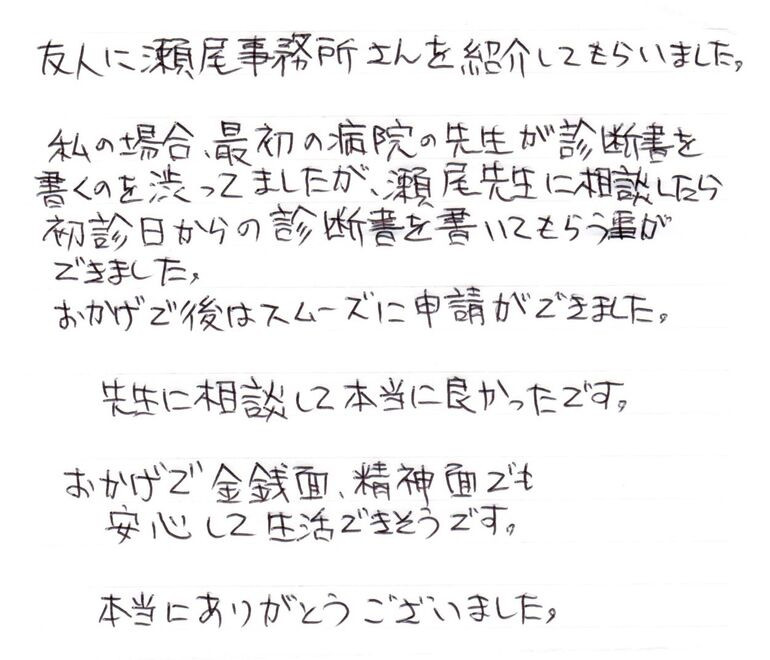 友人に瀬尾事務所さんを紹介してもらいました。
私の場合、最初の病院の先生が診断書を
書くのを渋ってましたが、瀬尾先生に相談したら
初診日からの診断書を書いてもらう事が
できました。
おかげで後はスムーズに申請ができました。
先生に相談して本当に良かったです。
おかげで金銭面、精神面でも
安心して生活できそうです。
本当にありがとうございました。